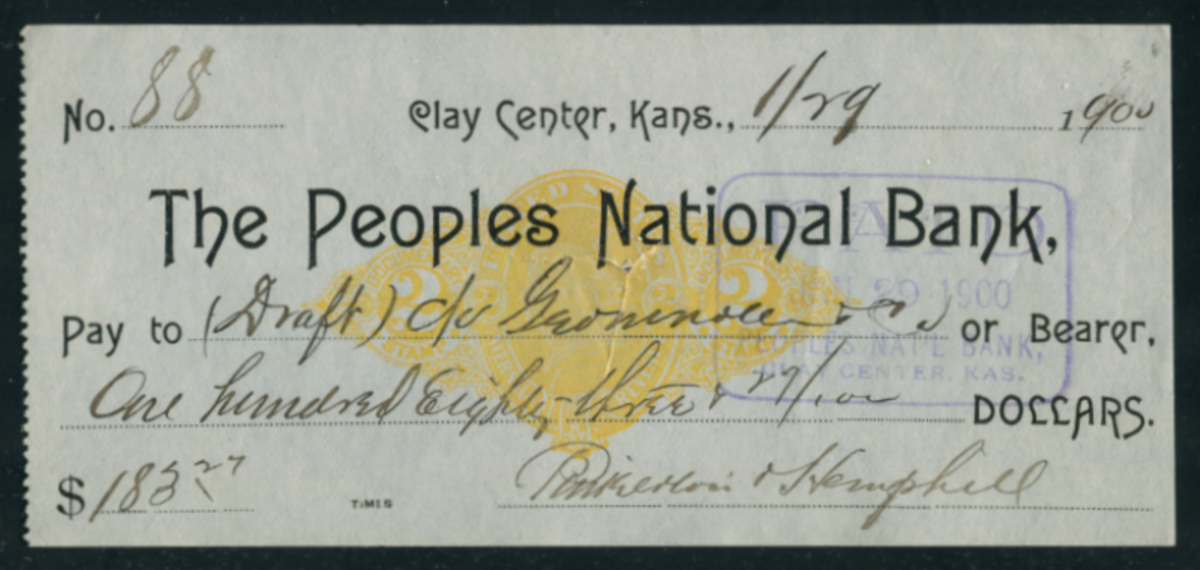 No. 88 Clay Center, Kans., 1/29 1900
The Peoples National Bank,
Pay to (Draft) c/o or Bearer,
One hundred Eighty-three & 27/100 DOLLARS.
$ 183 27 TIMES & Hemphill
UNITED STATES
DOCUMENTARY 2 2 DOCUMENTARY
STAMP STAMP
PAID
JAN 29 1900
PEOPLES NAT'L BANK,
CLAY CENTER, KAS.